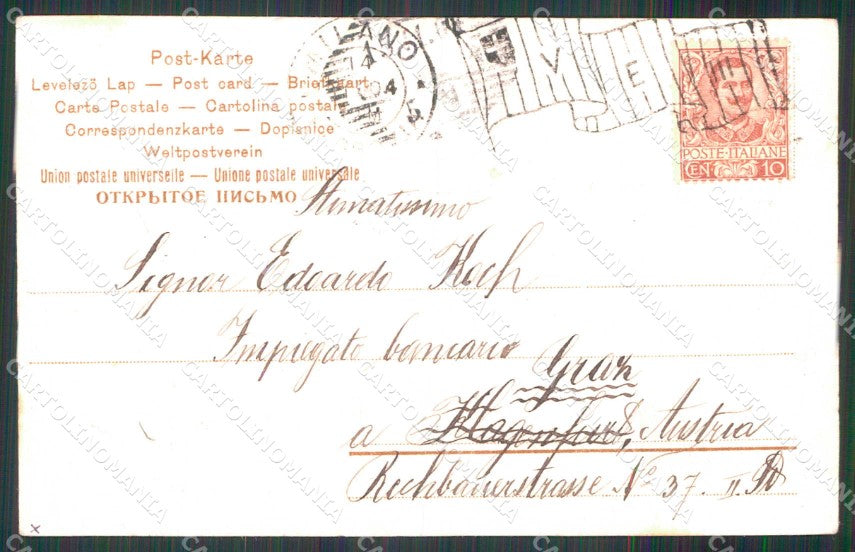 Post-Karte
Levelező Lap — Post card — Briefkaart
Carte Postale — Cartolina postale
Correspondenzkarte — Dopisnice
Weltpostverein
Union postale universelle — Unione postale universale
ОТКРЫТОЕ ПИСЬМО
MILANO
V E III
POSTE·ITALIANE
CEN 10
Stimatissimo
Signor Edoardo Koch
Impiegato bancario
Graz
a Klagenfurt, Austria
Rechbauerstrasse No 37. II.
CARTOLINOMANIA